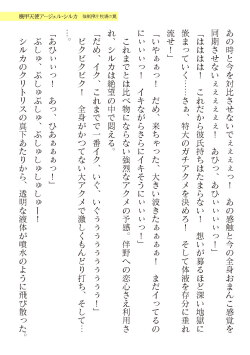 機甲天使アージェル・シルカ
あの時と今を対比させないでぇぇぇぇっ！　あの感触と今の全身おまんこ感覚を
同期させないぇぇぇぇぇ！　あひっ、あひぃぃっ！」
「はははは！　これだから彼氏持ちはたまらない！　想いが募るほど深い地獄に
嵌まっていく……さあ、特大のガチアクメを決めろ！　そして体液を存分に垂れ
流せ！」
「いやぁぁっ！　だめ、来ちゃった、大きい波きたぁぁぁぁ！　まだイッてるの
にぃぃぃっ！　イキながらさらにイキそうにぃぃぃぃっ！」
これまでとは比べ物にならない強烈なアクメの予感。伴野への恋心さえ利用さ
れ、シルカは絶望の中で悶える。
「だめ、イク、これまでで一番イク、いぐ、いぐぅぅぅぅぅぅぅぅぅ！」
ビクビクビク！　全身がかつてない大アクメで激しくもんどり打ち、そして…
…。
「あひいぃっ！　あっ、ひああぁぁぁっ！」
ぷしゅ、ぷしゅ、ぷしゅしゅしゅしゅーー！
シルカのクリトリスの真下あたりから、透明な液体が噴水のように飛び散った。